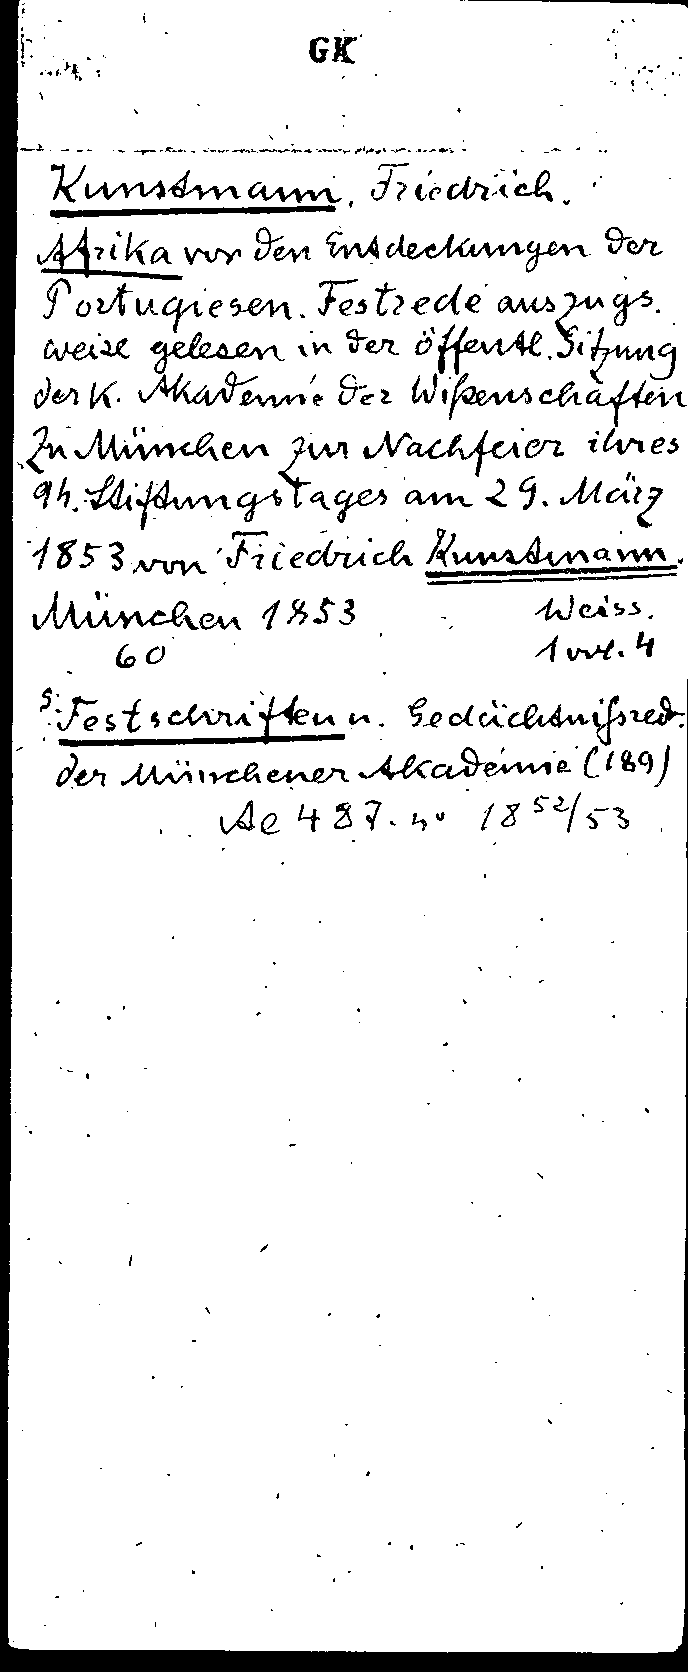 GK
Kunstmann, Friedrich.
Afrika vor den Entdeckungen der
Portugiesen. Festrede auszugs.
weise gelesen in der öffentl. Sitzung
der k. Akademie der Wißenschaften
zu München zur Nachfeier ihres
94. Stiftungstages am 29. März
1853 von Friedrich Kunstmann.
München 1853 Weiss.
60 1 vol. 4
s. Festschriften u. Gedächtnißred.
der Münchener Akademie (189)
Ae 487. 40 18 52/53